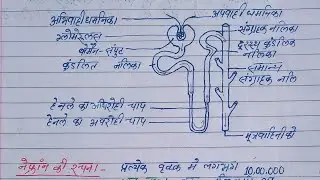 अभिवाही धमनिका
ग्लोमेरूलस
बोमैन संपुट
कुंडलित नलिका
अपवाही धमनिका
संग्राहक नलिका
दूरस्थ कुंडलित
नलिका
सामान्य
संग्राहक नलि
हेनले का अवरोही चाप
हेनले का
चाप
मूत्रवाहिनी को
नेफ्रॉन की रचना - प्रत्येक वृक्क में लगभग 10,00,000